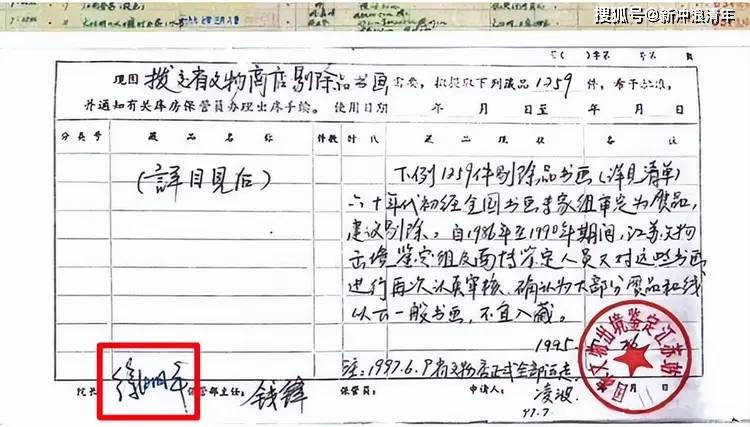 搜狐号@新冲浪清年
现因拨交省文物商店剔除品书画需要，拟提取下列藏品1259件，希予批准，
并通知有关库房保管员办理出库手续。使用日期 年 月 日至 年 月 日
分类号 藏品名称 件数 时代 藏品现状 备注
(详目见后)
下列1259件剔除品书画(详见清单)
六十年代初经全国书画专家组审定为赝品，
建议剔除。自1986年至1990年期间，江苏文物
出境鉴定组及南博鉴定人员又对这些书画
进行再次认真审核，确认为大部分赝品和线
以下一般书画，不宜入藏。
1995
国家文物出境鉴定江苏站
注：1997.6.9省文物店正式全部
院长： 保管部主任：钱锋 保管员： 申请人：凌波
97.7